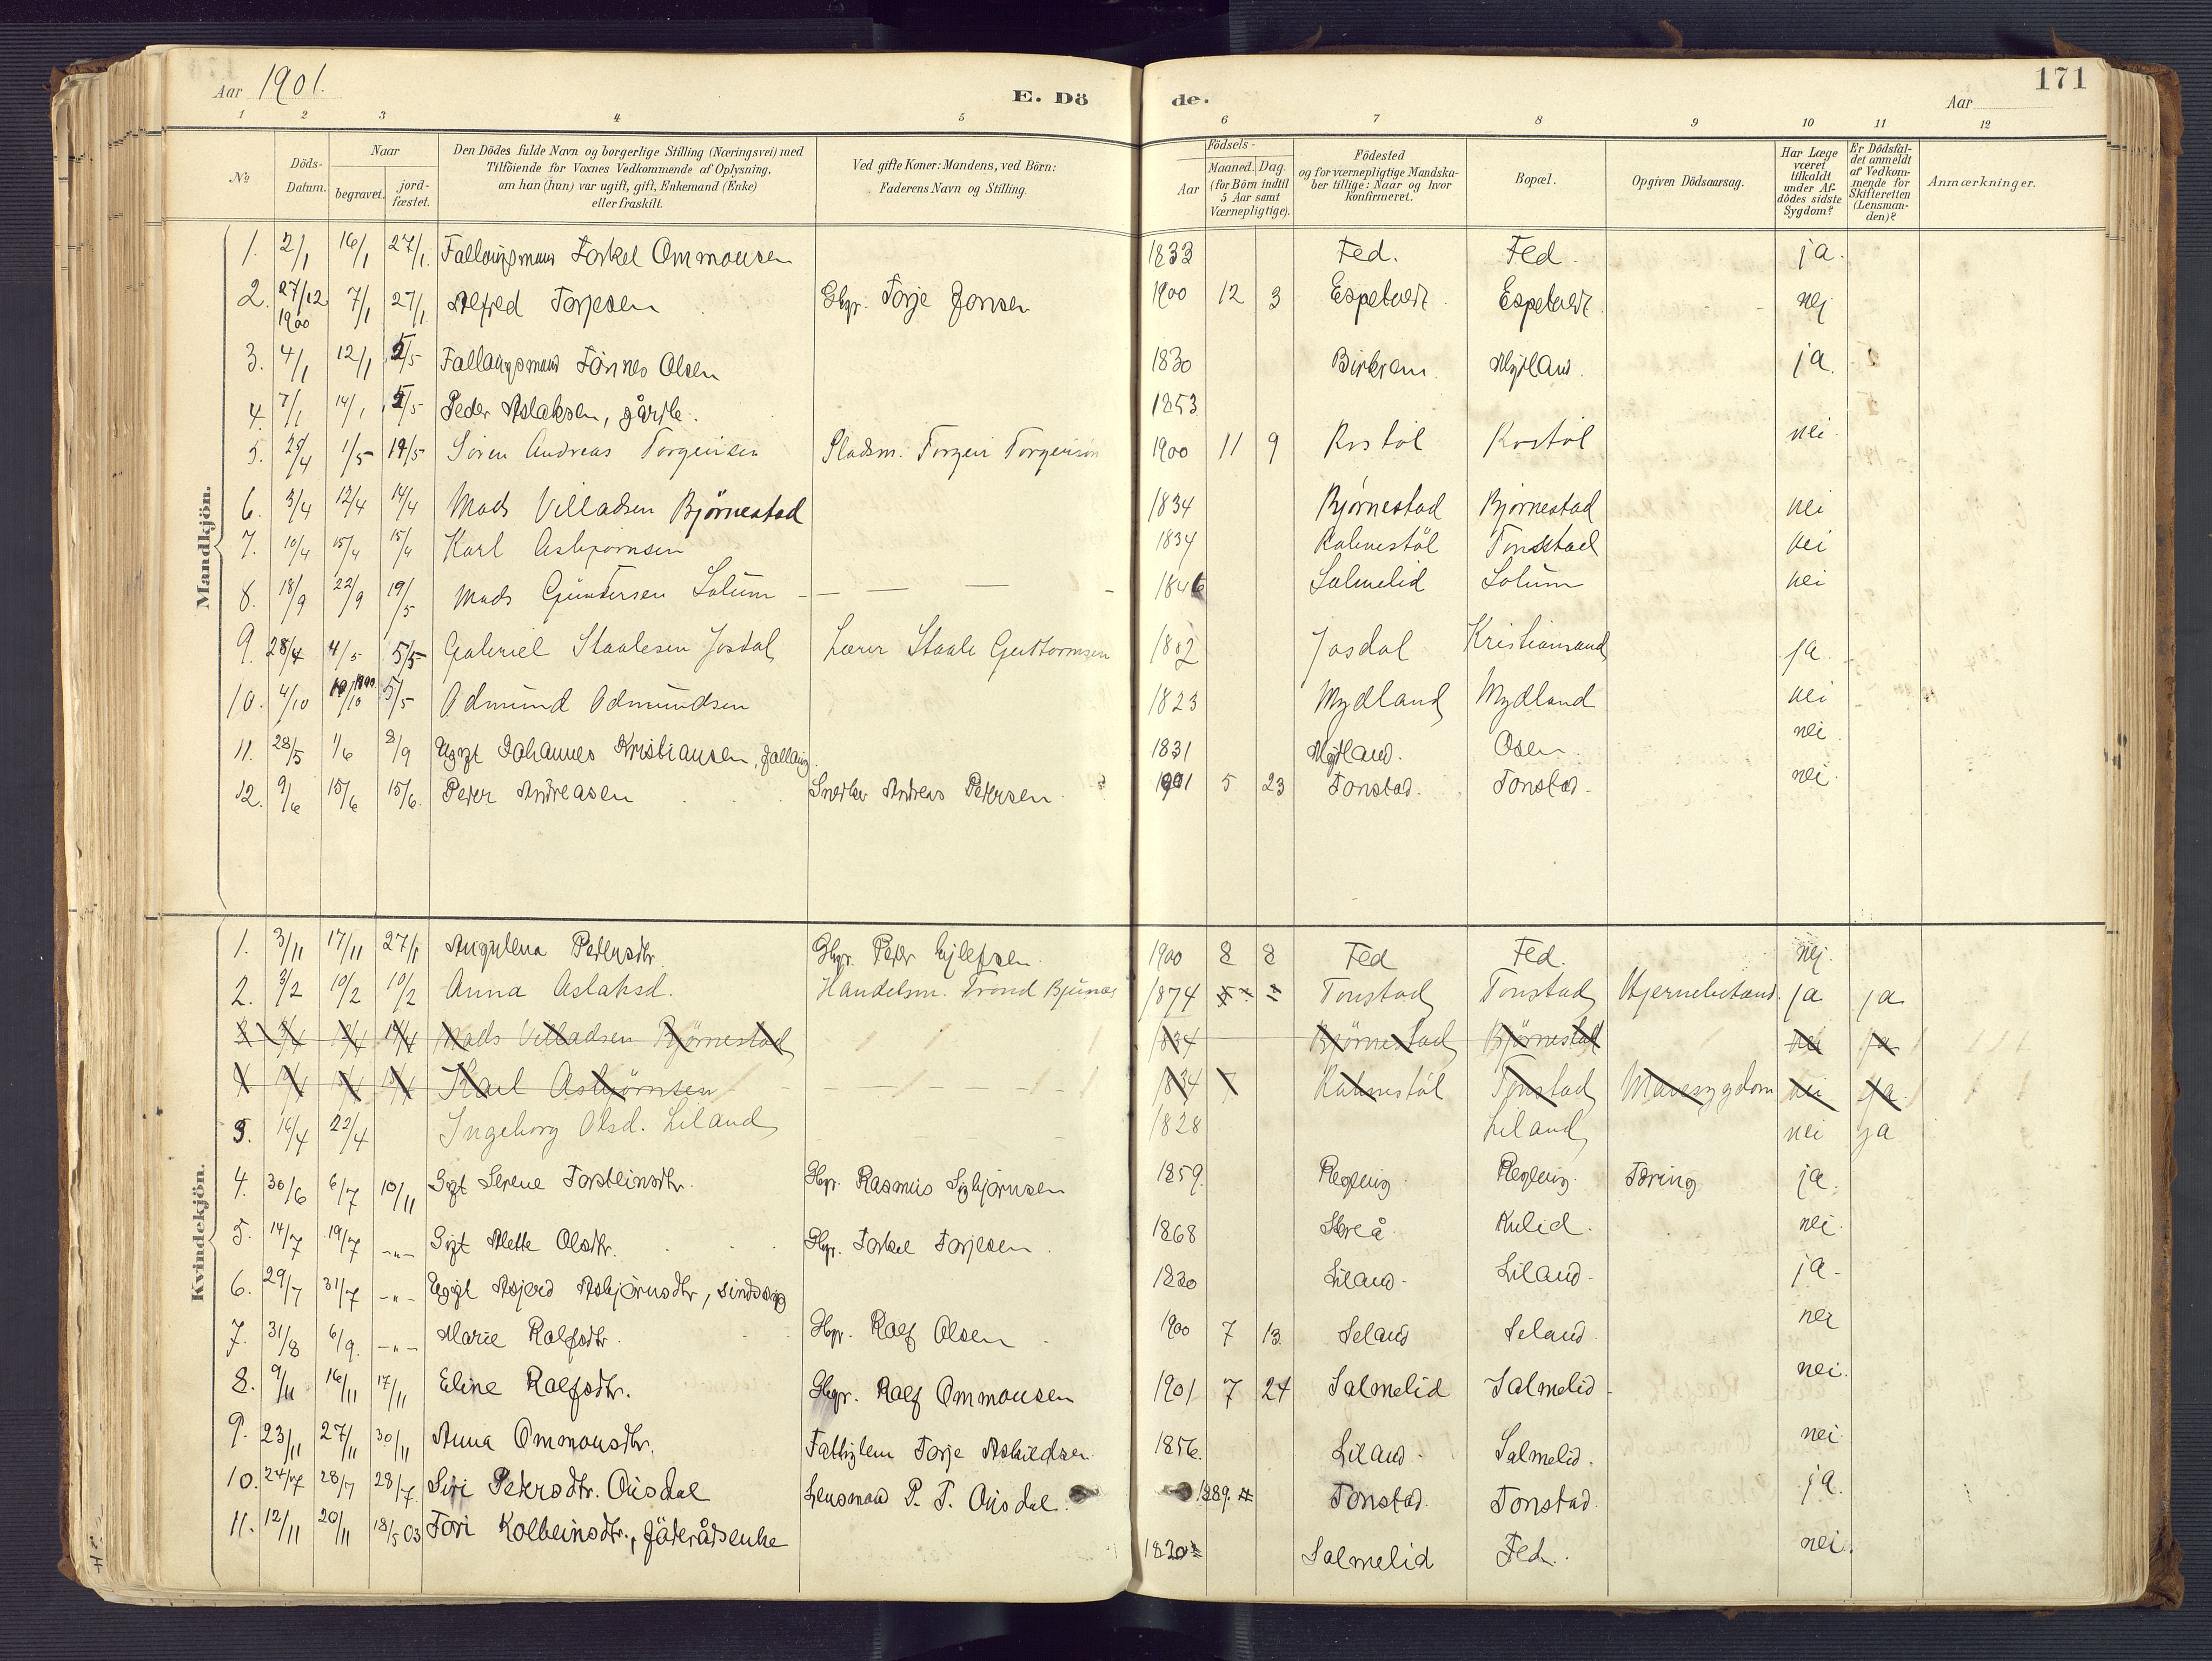 Aar 1901.
E. Dö
de.
Aar
171
1 2 3 4 5 6 7 8 9 10 11 12
No
Döds-Datum.
Naar
begravet.
jord-fæstet.
Den Dödes fulde Navn og borgerlige Stilling (Næringsvei) med
Tilföiende for Voxnes Vedkommende af Oplysning,
om han (hun) var ugift, gift, Enkemand (Enke)
eller fraskilt.
Ved gifte Koner: Mandens, ved Börn:
Faderens Navn og Stilling.
Födsels-
Aar
Maaned. Dag.
(for Börn indtil
5 Aar samt
Værnepligtige).
Födested
og for værnepligtige Mandska-
ber tillige: Naar og hvor
konfirmeret.
Bopæl.
Opgiven Dödsaarsag.
Har Læge
været
tilkaldt
under Af-
dödes sidste
Sygdom?
Er Dödsfal-
det anmeldt
af Vedkom-
mende for
Skifteretten
(Lensman-
den)?
Anmærkninger.
Mandkjön.
1. 2/1 16/1 27/1 Torkel Ommonsen 1833 Fed. Fed. ja.
2. 27/12 1900 7/1 27/1 Alfred Torjesen Gbgr. Torje Jonsen 1900 12 3 nej
3. 4/1 12/1 /5 Tönnes Olsen 1830 Birkrem Mydland. ja.
4. 7/1 14/1 /5 Peder Aslaksen, 1853
5. 25/4 1/5 19/5 Sören Andreas Torgeirsen Pladsm. Torgeir Torgeirsen 1900 11 9 nei
6. 3/4 12/4 14/4 Mads Villadsen Björnestad 1834 Björnestad Björnestad nei
7. 10/4 15/4 15/4 Karl Asbjörnsen 1834 Tonstad nei
8. 18/9 22/9 19/5 Mads Guntersen Solum 1846 Salmelid Solum nei
9. 28/4 4/5 5/5 Gabriel Staalesen Josdal Lærer Staale Guttormsen Josdal Kristiansand ja.
10. 4/10 10/10 1900 5/5 Odmund Odmundsen 1823 Mydland Mydland nei
11. 28/5 1/6 8/9 Ugift Johannes Kristiansen, 1831 Mydland. Osen. nei
12. 9/6 15/6 15/6. Peter Andreasen Snedker Andreas Petersen 1901 5 23 Tonstad. Tonstad. nei
Kvindekjön.
1. 3/11 17/11 27/1 Petersdtr. Gbgr. Peter 1900 8 8 Fed Fed. nej.
2. 3/2 10/2 10/2 Anna Aslaksd. Handelsm. Trond 1874 Tonstad Tonstad Hjernebetænd. ja ja
Mads Villadsen Björnestad 1834 Björnestad Björnestad nei ja
Karl Asbjörnsen 1834 Tonstad Mavesygdom nei ja
3. 16/4 22/4 Ingeborg Olsd. Liland 1828 Liland nei ja
4. 30/6 6/7 10/11 Gift Serene Torsteinsdtr. Gbgr. Rasmus 1859. Regevig Regevig Tæring ja.
5. 14/7 19/7 -„- Gift Mette Olsdtr. Gbgr. Torkel Torjesen 1868 Skreå Kvlid. nei.
6. 29/7 31/7 -„- Ugift Asbjörnsdtr, sindssyg 1820 Liland. Liland. ja.
7. 31/8 6/9. -„- Marie Ralfsdtr. Gbgr. Ralf Olsen 1900 7 13 Seland Seland nei
8. 9/11 16/11 17/11 Eline Ralfsdtr. Gbgr. Ralf Ommonsen 1901 7 24 Salmelid Salmelid nei.
9. 23/11 27/11 30/11 Anna Ommonsdtr. Fattiglem Torje 1856. Liland. Salmelid. nei
10. 24/7 28/7 28/7 Siri Petersdtr. Ousdal Lensmand P. T. Ousdal. 1889. Tonstad. Tonstad. ja.
11. 12/11 20/11 18/5 03 Tori Kolbeinsdtr., Föderådsenke 1820 Salmelid Fed. nei.